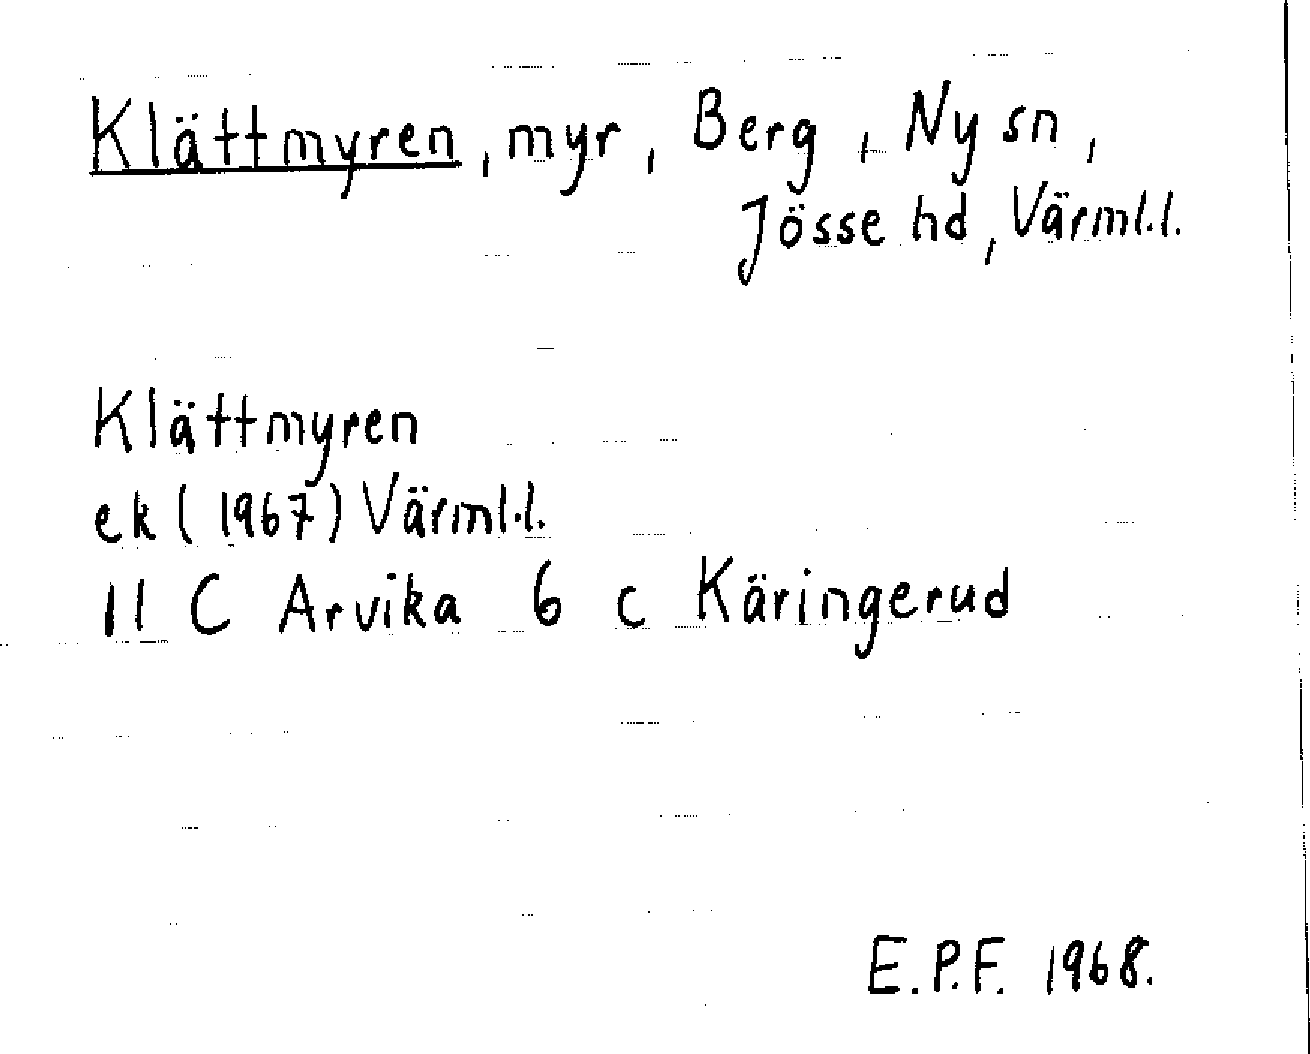 Klättmyren, myr, Berg, Ny sn,
Jösse hd, Värml.l.
Klättmyren
ek (1967) Värml.l.
11 C Arvika 6 c Käringerud
E.P.F. 1968.